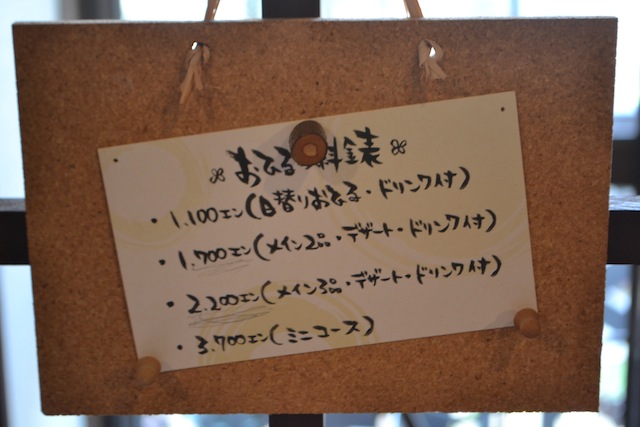 おひる料金表
・1.100エン(日替りおひる・ドリンク付)
・1.700エン(メイン2品・デザート・ドリンク付)
・2.200エン(メイン3品・デザート・ドリンク付)
・3.700エン(ミニコース)